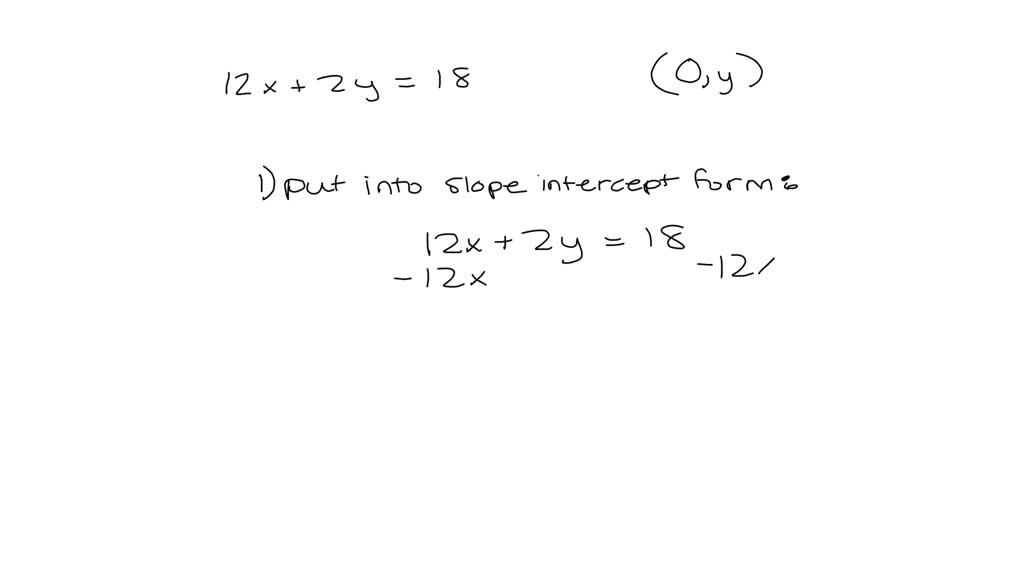 12x + 2y = 18 (0,y)
1) put into slope intercept form:
12x + 2y = 18
-12x -12